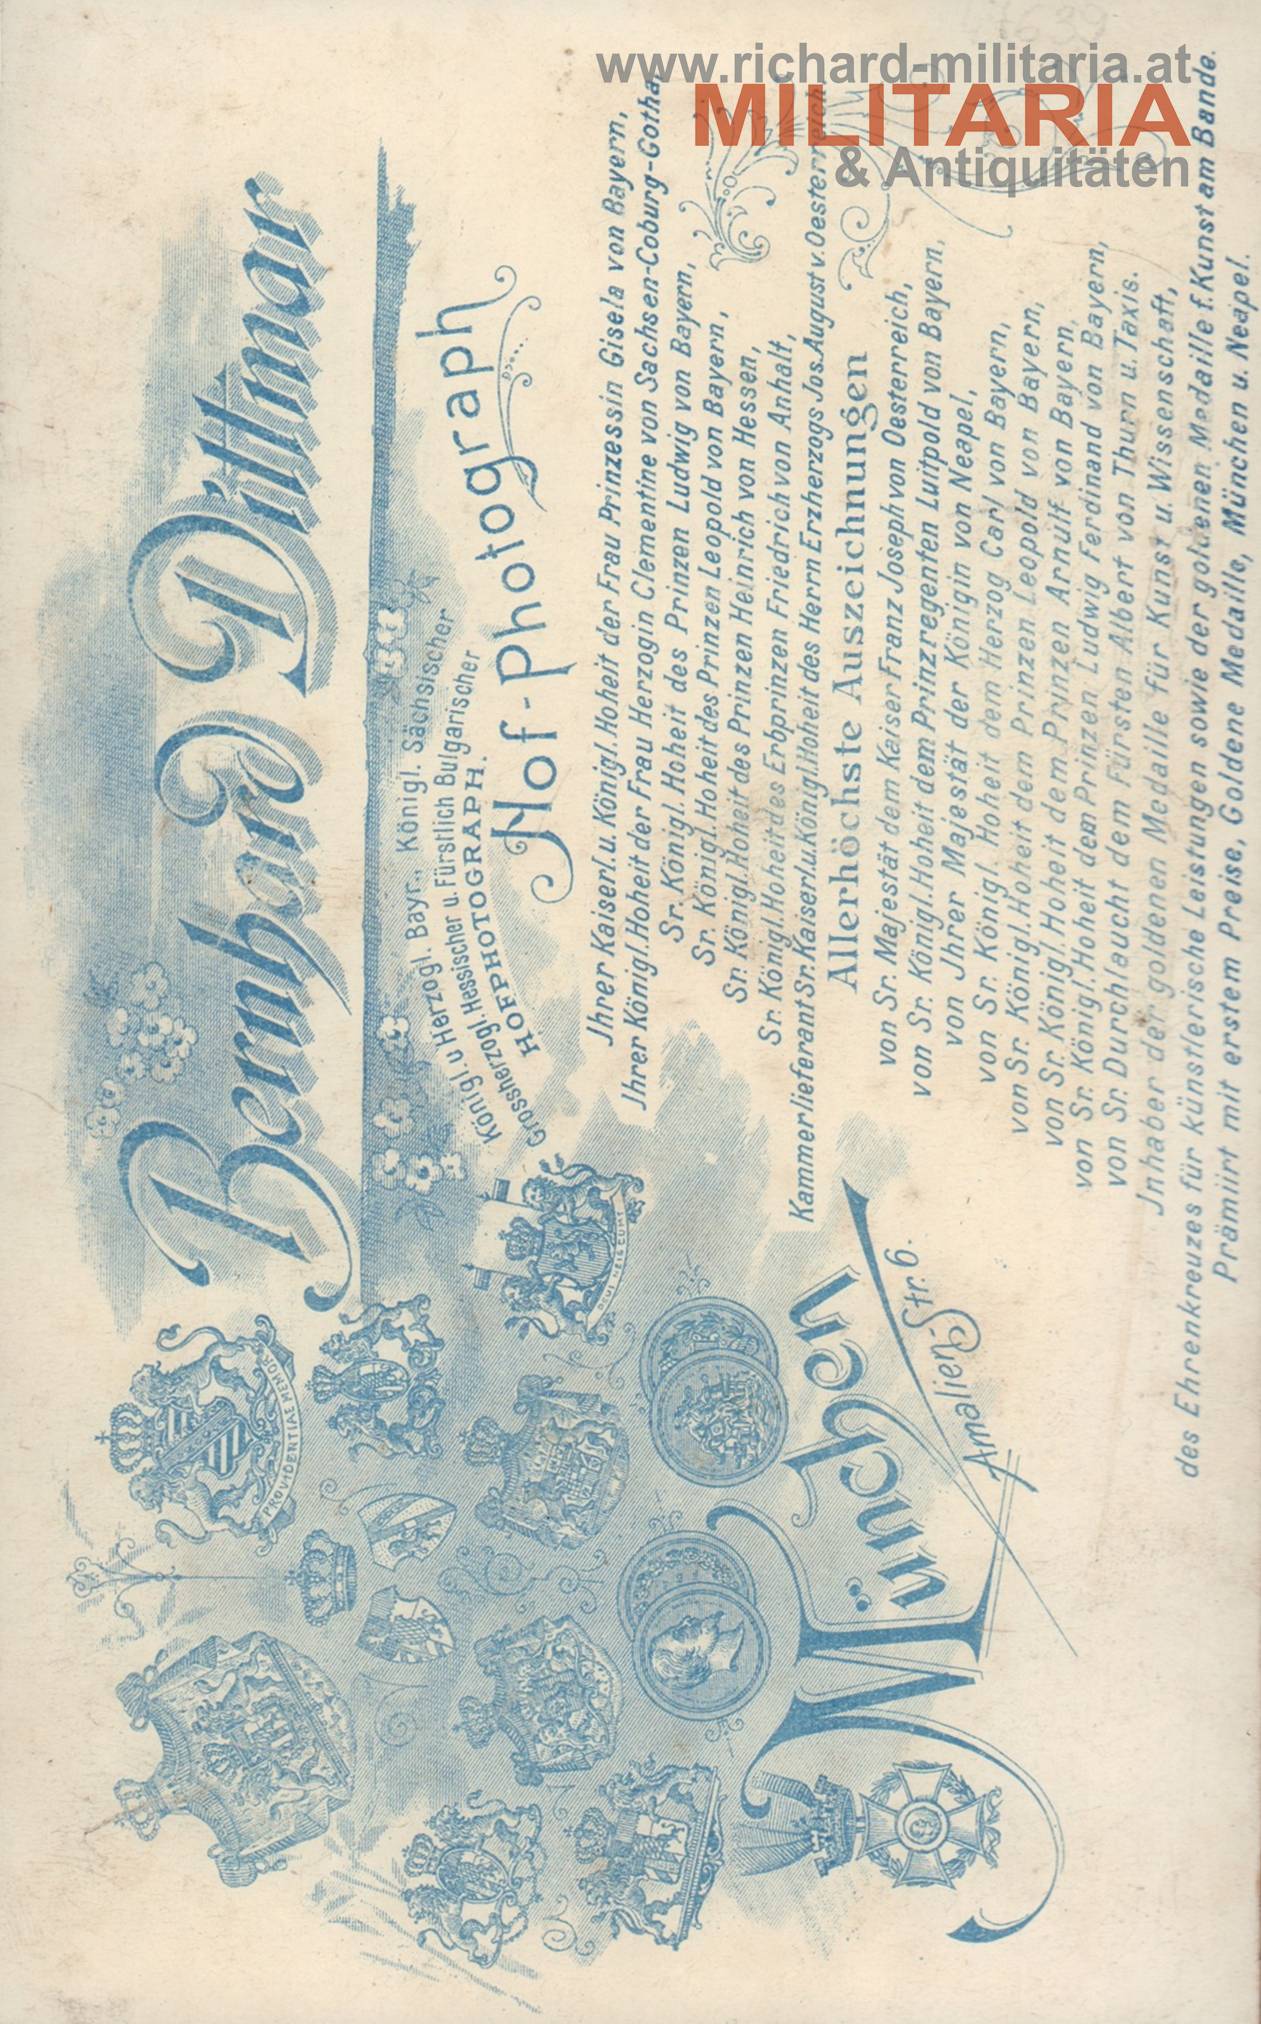 www.richard-militaria.at
MILITARIA
& Antiquitäten
Bernhard Dittmar
Königl. u Herzogl. Bayr., Königl. Sächsischer
Grossherzogl. Hessischer u. Fürstlich Bulgarischer
HOFPHOTOGRAPH.
Hof-Photograph
Jhrer Kaiserl. u. Königl. Hoheit der Frau Prinzessin Gisela von Bayern,
Jhrer Königl. Hoheit der Frau Herzogin Clementine von Sachsen-Coburg-Gotha,
Sr. Königl. Hoheit des Prinzen Ludwig von Bayern,
Sr. Königl. Hoheit des Prinzen Leopold von Bayern,
Sr. Königl. Hoheit des Prinzen Heinrich von Hessen,
Sr. Königl. Hoheit des Erbprinzen Friedrich von Anhalt,
Kammerlieferant Sr. Kaiserl. u. Königl. Hoheit des Herrn Erzherzogs Jos. August v. Oesterreich
Allerhöchste Auszeichnungen
von Sr. Majestät dem Kaiser Franz Joseph von Oesterreich,
von Sr. Königl. Hoheit dem Prinzregenten Luitpold von Bayern,
von Jhrer Majestät der Königin von Neapel,
von Sr. Königl. Hoheit dem Herzog Carl von Bayern,
von Sr. Königl. Hoheit dem Prinzen Leopold von Bayern,
von Sr. Königl. Hoheit dem Prinzen Arnulf von Bayern,
von Sr. Königl. Hoheit dem Prinzen Ludwig Ferdinand von Bayern,
von Sr. Durchlaucht dem Fürsten Albert von Thurn u. Taxis.
Jnhaber der goldenen Medaille für Kunst u. Wissenschaft,
des Ehrenkreuzes für künstlerische Leistungen sowie der goldenen Medaille f. Kunst am Bande.
Prämiirt mit erstem Preise, Goldene Medaille, München u. Neapel.
München
Amalien-Str. 6.
PROVIDENTIAE MEMOR